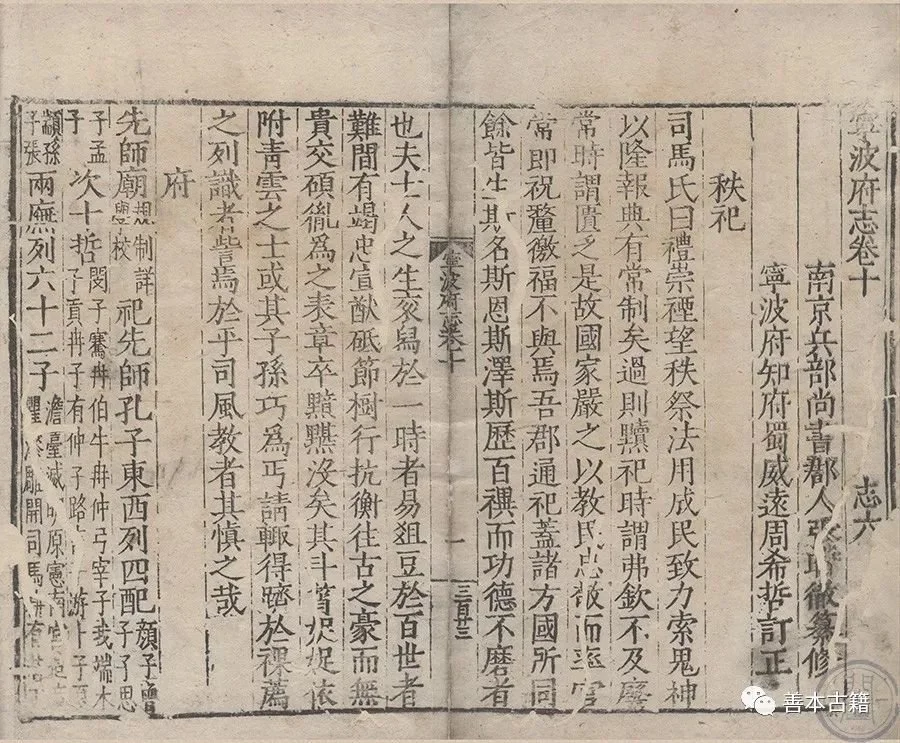 寧波府志卷十 志六
南京兵部尚書郡人張時徹纂修
寧波府知府蜀威遠周希哲訂正
秩祀
司馬氏曰禮崇禋望秩祭法用成民致力索鬼神
以隆報典有常制矣過則黷祀時謂弗欽不及廢
常時謂遺乏是故國家嚴之以教民忠敬而率官
常即祝釐徼福不與焉吾郡通祀蓋諸方國所同
餘皆生斯名斯恩斯澤斯歷百禩而功德不磨者
寧波府志卷十 一 三百廿三
也夫士人之生奕舃於一時者易俎豆於百世者
難間有竭忠宣猷砥節樹行抗衡往古之豪而無
貴交碩胤爲之表章卒黮黮沒矣其斗筲捉捉依
附青雲之士或其子孫巧爲丐請輒得躋於祼薦
之列識者訾焉於乎司風教者其慎之哉
府
先師廟規制詳學校祀先師孔子東西列四配顏子曾子子思
子孟子次十哲閔子騫冉伯牛冉仲弓宰子我端木子貢冉子有仲子路 游卜子夏
顓孫子張兩廡列六十二子澹臺滅明原憲南宮适 漆雕開司馬